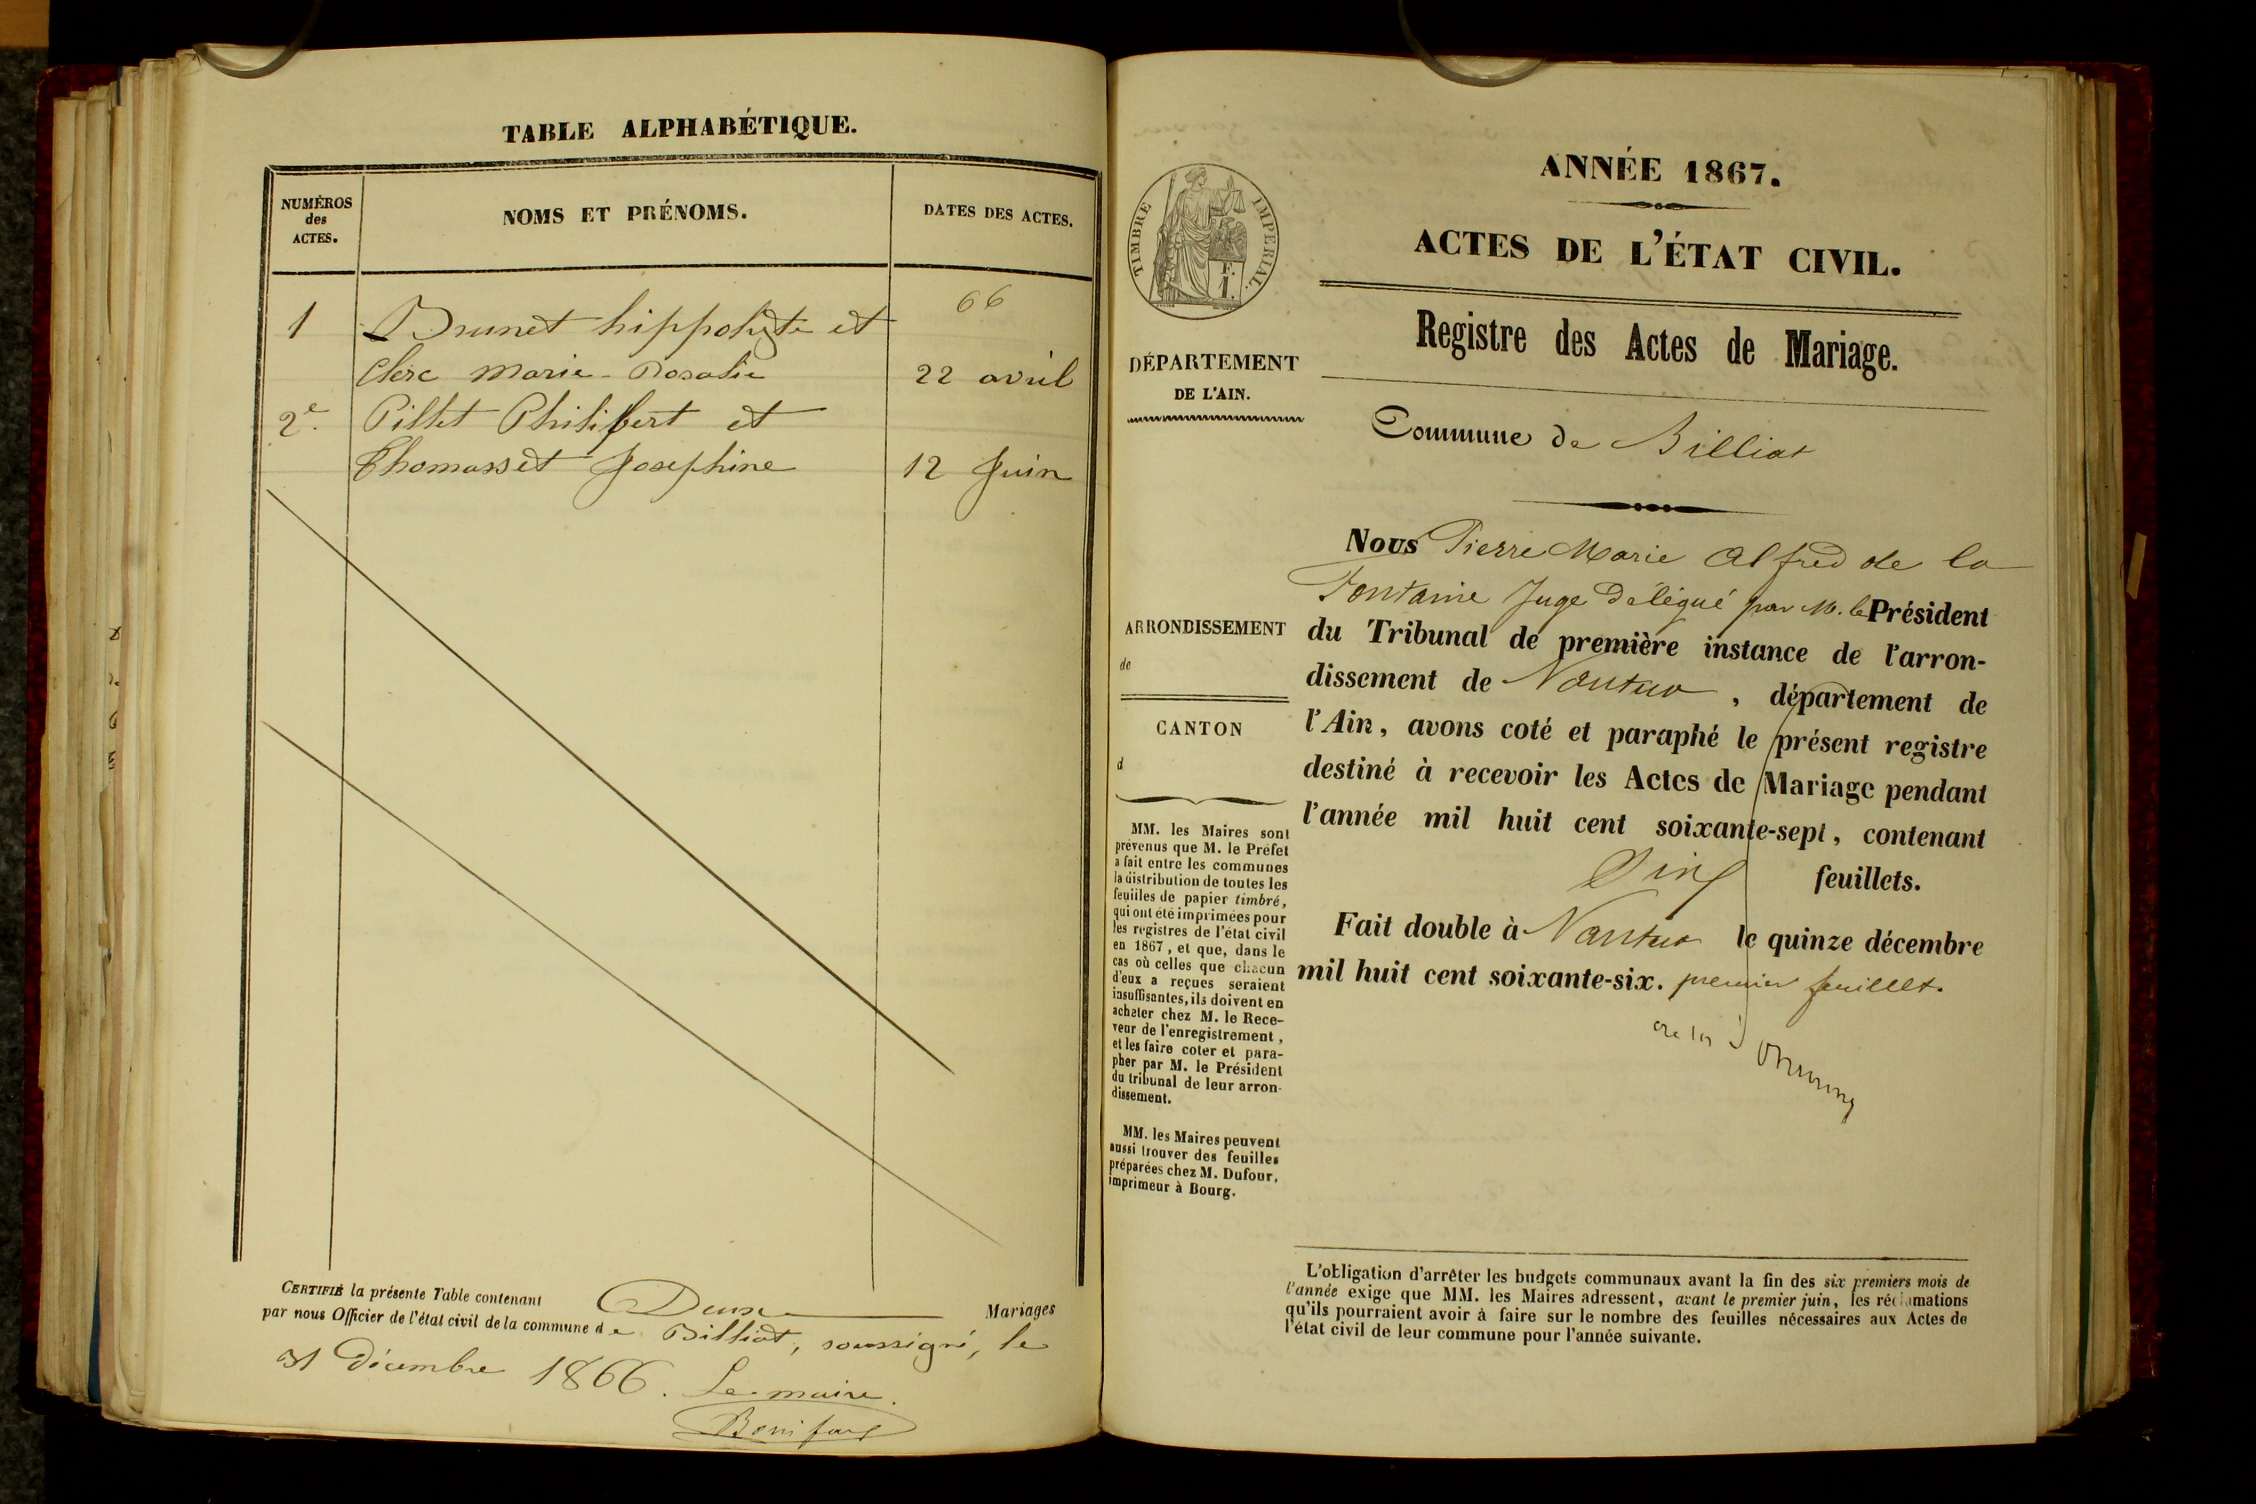 TABLE ALPHABÉTIQUE.
NUMÉROS
des
ACTES.
NOMS ET PRÉNOMS.
DATES DES ACTES.
66
1 Brunet hippolyte et
Clerc Marie-Rosalie 22 avril
2e. Pillet Philibert et
Thomasset Josephine 12 Juin
CERTIFIÉ la présente Table contenant Deux Mariages
par nous Officier de l'état civil de la commune de Billiat, soussigné, le
31 Décembre 1866. Le maire.
TIMBRE IMPÉRIAL.
F.
1.
DÉPARTEMENT
DE L'AIN.
ARRONDISSEMENT
de
CANTON
d
MM. les Maires sont
prévenus que M. le Préfet
a fait entre les communes
la distribution de toutes les
feuilles de papier timbré,
qui ont été imprimées pour
les registres de l'état civil
en 1867, et que, dans le
cas où celles que chacun
d'eux a reçues seraient
insuffisantes, ils doivent en
acheter chez M. le Rece-
veur de l'enregistrement,
et les faire coter et para-
pher par M. le Président
du tribunal de leur arron-
dissement.
MM. les Maires peuvent
aussi trouver des feuilles
préparées chez M. Dufour,
imprimeur à Bourg.
ANNÉE 1867.
ACTES DE L'ÉTAT CIVIL.
Registre des Actes de Mariage.
Commune de Billiat
Nous Pierre Marie Alfred de la
Fontaine Juge Délégué par M. le Président
du Tribunal de première instance de l'arron-
dissement de Nantua, département de
l'Ain, avons coté et paraphé le présent registre
destiné à recevoir les Actes de Mariage pendant
l'année mil huit cent soixante-sept, contenant
Cinq feuillets.
Fait double à Nantua le quinze décembre
mil huit cent soixante-six. premier feuillet.
L'obligation d'arrêter les budgets communaux avant la fin des six premiers mois de
l'année exige que MM. les Maires adressent, avant le premier juin, les réclamations
qu'ils pourraient avoir à faire sur le nombre des feuilles nécessaires aux Actes de
l'état civil de leur commune pour l'année suivante.